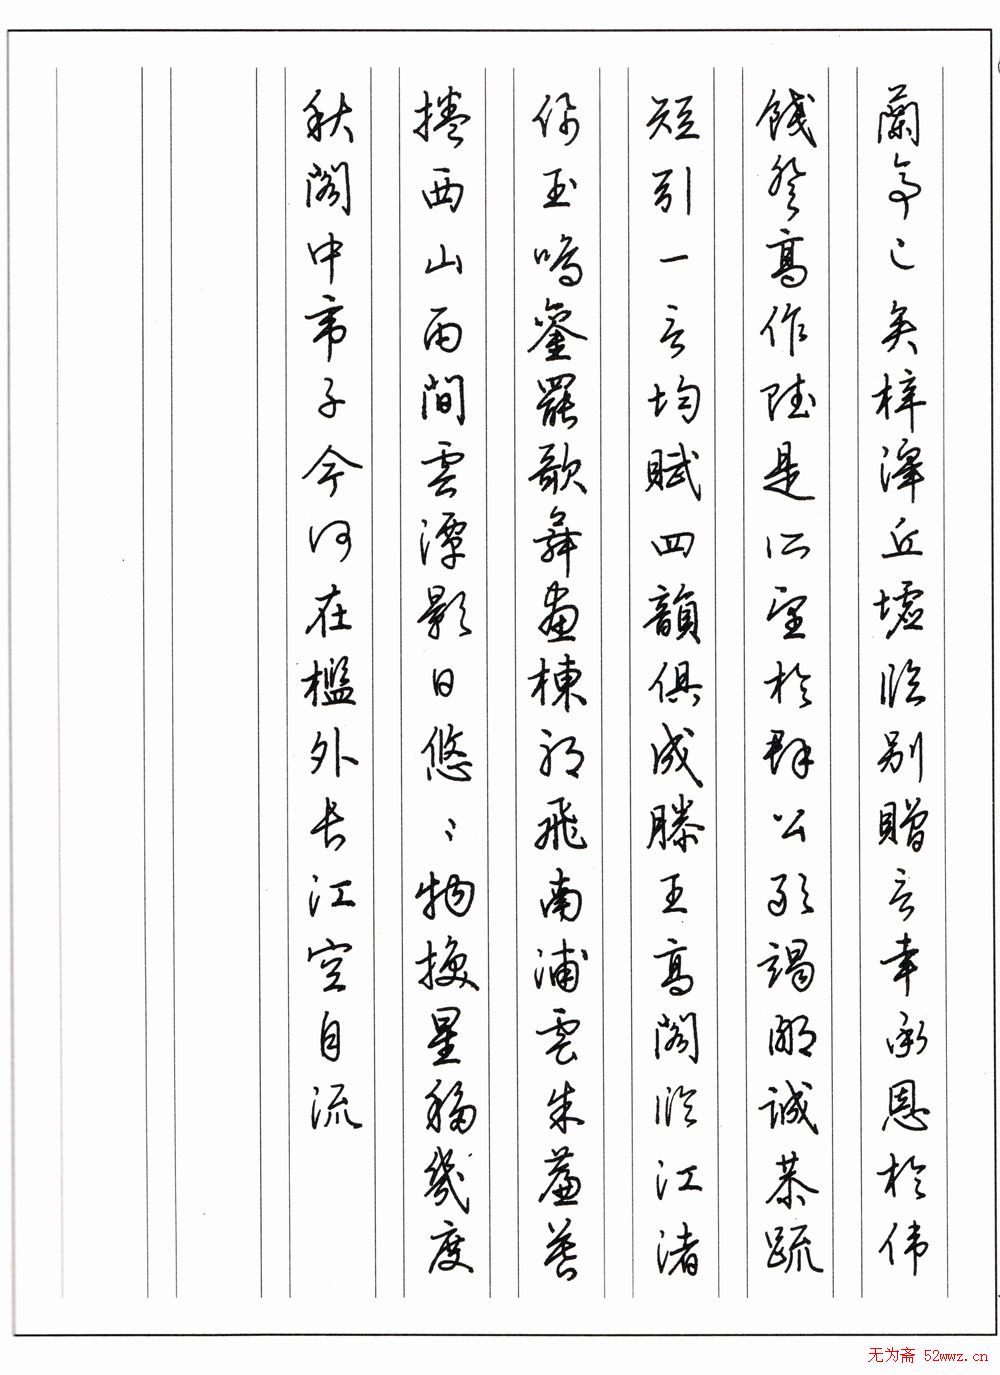 蘭亭已矣梓澤丘墟臨别贈言幸承恩於伟
餞登高作賦是所望於群公敢竭鄙誠恭疏
短引一言均賦四韻俱成滕王高阁临江渚
佩玉鳴鑾罷歌舞畫棟朝飛南浦雲朱簾暮
捲西山雨間雲潭影日悠〻物換星移幾度
秋阁中帝子今何在檻外长江空自流
无为斋 52wwz.cn